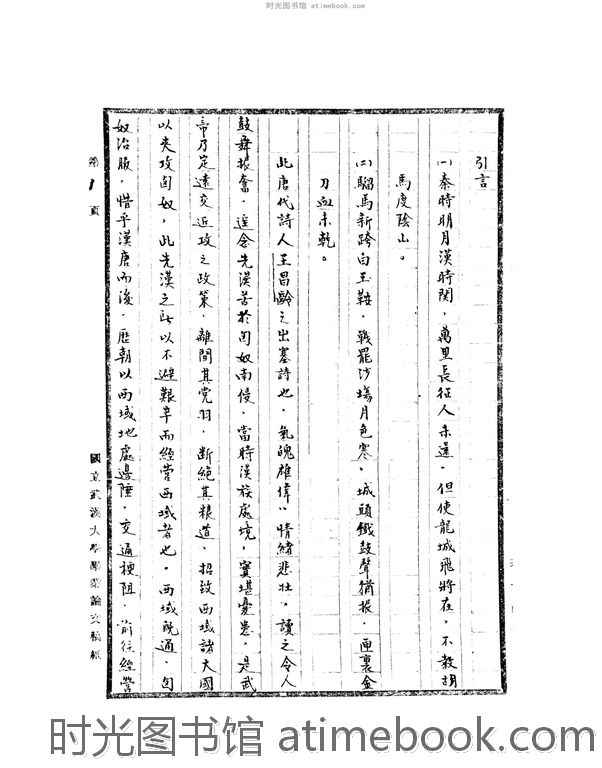 时光图书馆 atimebook.com
引言
㈠秦時明月漢時関，萬里長征人未還，但使龍城飛將在，不教胡
馬度陰山。
㈡騮馬新跨白玉鞍，戰罷沙場月色寒，城頭鐵鼓聲猶振，匣裏金
刀血未乾。
此唐代詩人王昌齡之出塞詩也，氣魄雄偉，情緒悲壯，讀之令人
鼓舞振奮，遥念先漢苦於匈奴南侵，當時漢族處境，實堪憂患，是武
帝乃定遠交近攻之政策，離間其党羽，断絕其粮道，招致西域諸大國
以夹攻匈奴，此先漢之所以不避艱辛而經營西域者也，西域既通，匈
奴治服，惜乎漢唐而後，歷朝以西域地處邊陲，交通梗阻，前往經營
第1頁
國立武漢大學畢業論文稿紙
时光图书馆 atimebook.com